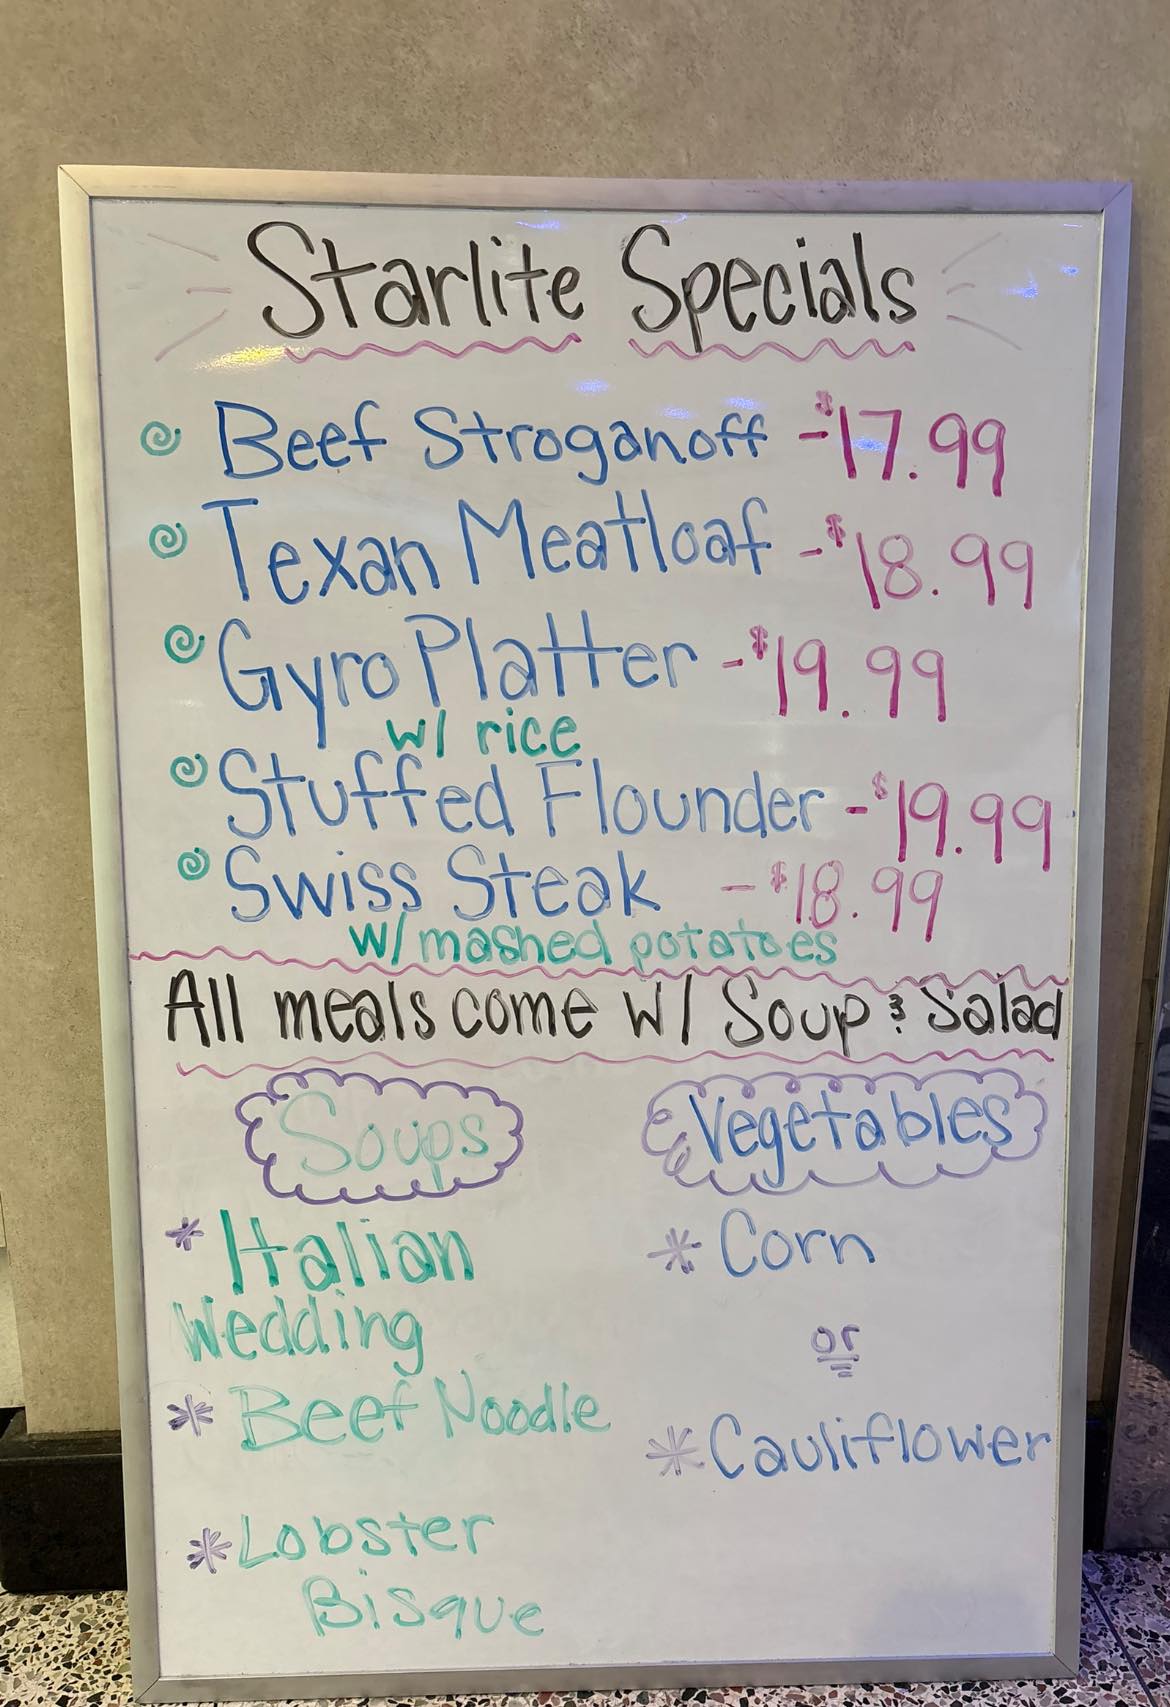 Starlite Specials
Beef Stroganoff - $17.99
Texan Meatloaf - $18.99
Gyro Platter - $19.99
w/ rice
Stuffed Flounder - $19.99
Swiss Steak - $18.99
w/ mashed potatoes
All meals come w/ Soup & Salad
Soups
Vegetables
* Italian
Wedding
* Beef Noodle
* Lobster
Bisque
* Corn
or
* Cauliflower